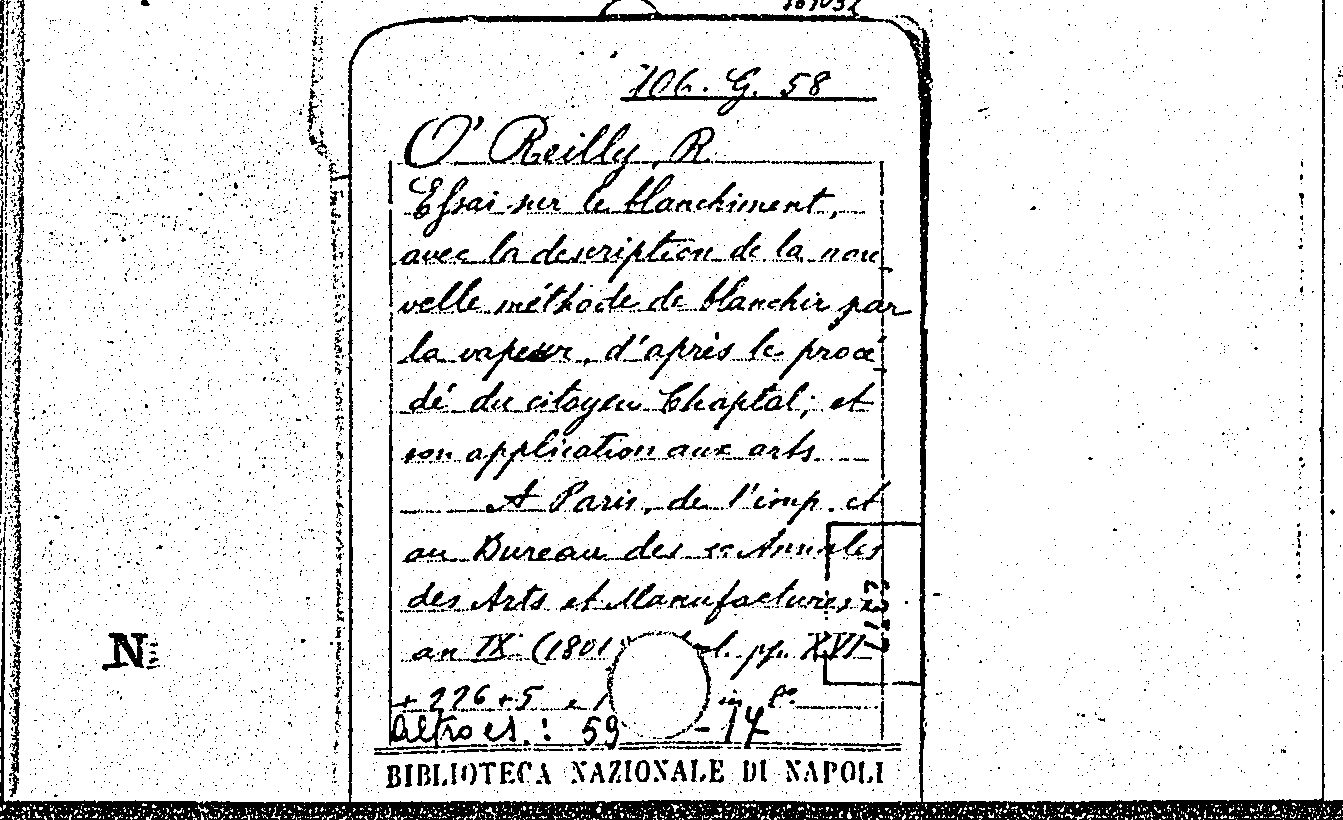 106. G. 58
O' Reilly, R.
Essai sur le blanchiment,
avec la description de la nou_
velle méthode de blanchir par
la vapeur, d'après le procé_
dé du citoyen Chaptal; et
son application aux arts.
A Paris, de l'imp. et
au Bureau des « Annales
des Arts et Manufactures »
an IX (1801) pp. XVI
+ 226 + 5 in 8º
Altro es.: 59 - 14
BIBLIOTECA NAZIONALE DI NAPOLI
N